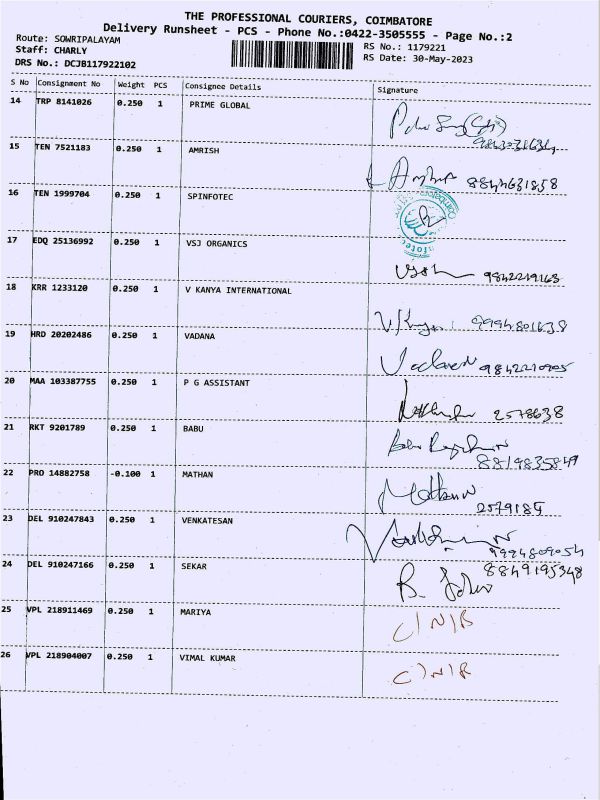 THE PROFESSIONAL COURIERS, COIMBATORE
Delivery Runsheet - PCS - Phone No.:0422-3505555 - Page No.:2
Route: SOWRIPALAYAM
RS No.: 1179221
Staff: CHARLY
RS Date: 30-May-2023
DRS No.: DCJB117922102
S No Consignment No Weight PCS Consignee Details Signature
14 TRP 8141026 0.250 1 PRIME GLOBAL
15 TEN 7521183 0.250 1 AMRISH
8844631858
16 TEN 1999704 0.250 1 SPINFOTEC
17 EDQ 25136992 0.250 1 VSJ ORGANICS
9842219163
18 KRR 1233120 0.250 1 V KANYA INTERNATIONAL
9994801638
19 HRD 20202486 0.250 1 VADANA
9842210905
20 MAA 103387755 0.250 1 P G ASSISTANT
2578638
21 RKT 9201789 0.250 1 BABU
8819835849
22 PRO 14882758 -0.100 1 MATHAN
Mathan
2579184
23 DEL 910247843 0.250 1 VENKATESAN
9994809054
24 DEL 910247166 0.250 1 SEKAR
8849195348
25 VPL 218911469 0.250 1 MARIYA
C/N/R
26 VPL 218904007 0.250 1 VIMAL KUMAR
C/N/R